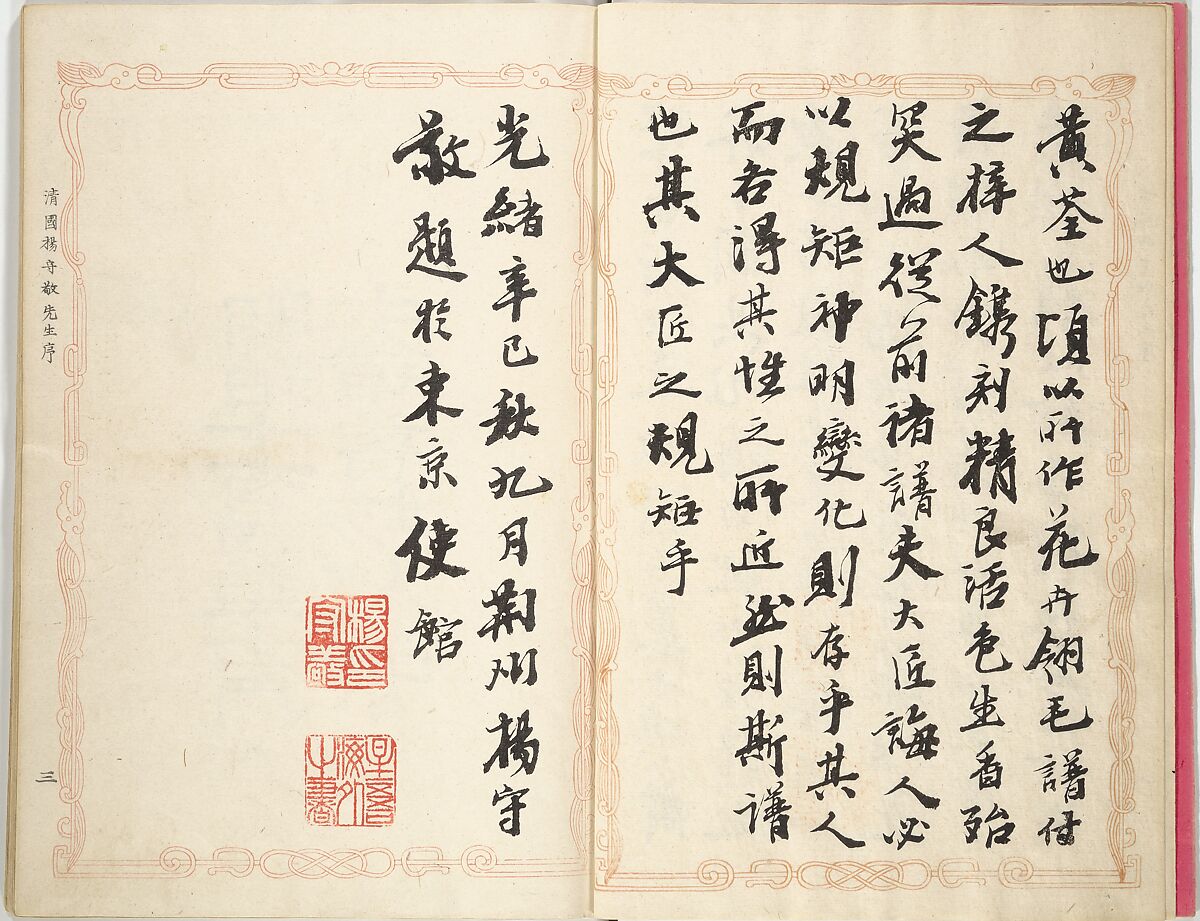 黃荃也頃以所作花卉翎毛譜付
之梓人鐫刻精良活色生香殆
突過從前諸譜夫大匠誨人必
以規矩神明變化則存乎其人
而各得其性之所近然則斯譜
也其大匠之規矩乎
光緒辛巳秋九月荊州楊守
敬題於東京使館
楊印守敬
海外之書
清國楊守敬先生序
三